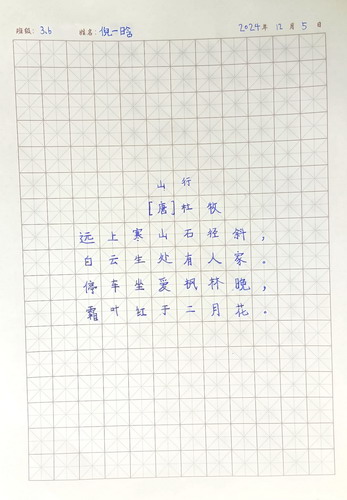 班级: 3.6 姓名: 倪一晗 2024年 12月 5日
山行
[唐]杜牧
远上寒山石径斜,
白云生处有人家.
停车坐爱枫林晚,
霜叶红于二月花.